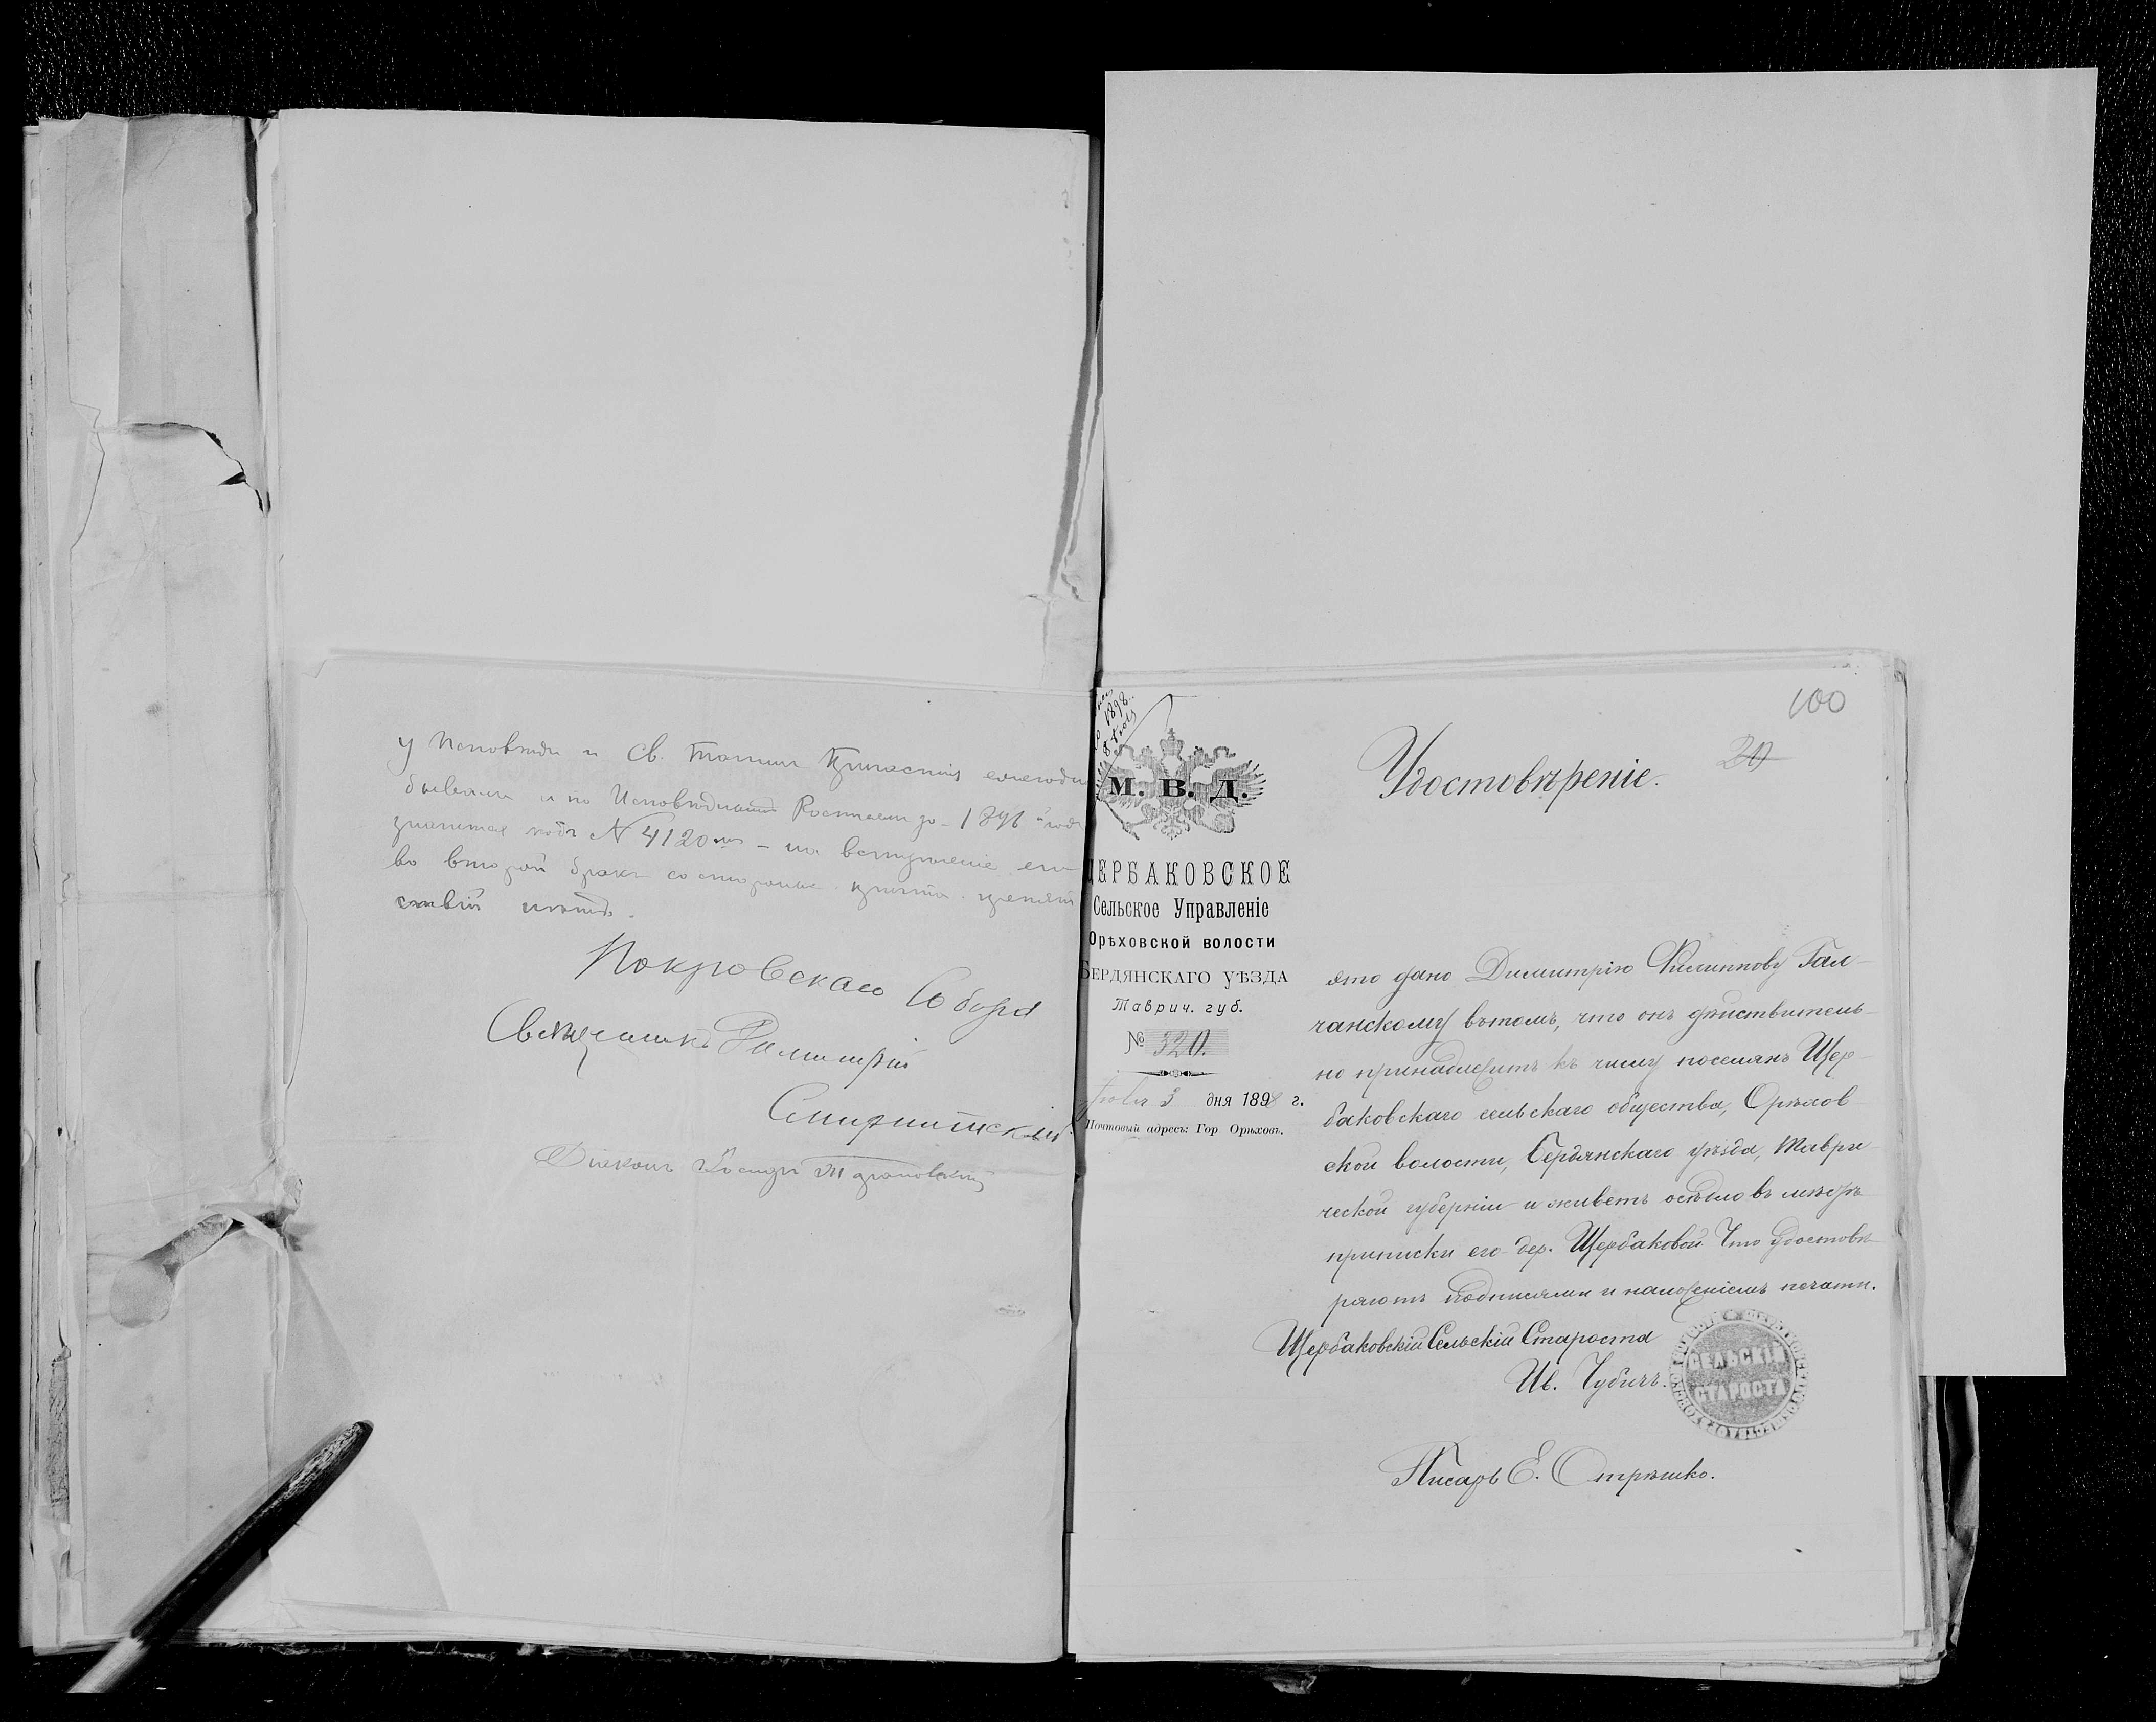 у Исповѣди и Св. Таинъ Причастія ежегодно
бываетъ и по Исповѣднымъ Росписямъ до 1898 года
значится подъ № 4120мъ – на вступленіе его
во второй бракъ со стороны причта препят
ствій нѣтъ.
Покровскаго Собора
Священникъ Димитрій
Діаконъ
1898
100
20
Удостовѣреніе.
М. В. Д.
ЩЕРБАКОВСКОЕ
Сельское Управленіе
Орѣховской волости
БЕРДЯНСКАГО УѢЗДА
Таврич. губ.
№ 320.
3 дня 1898 г.
Почтовый адресъ: Гор Орѣховъ.
это дано Димитрію Филиппову Гал-
чанскому въ томъ, что онъ дѣйствитель-
но принадлежитъ къ числу поселянъ Щер-
баковскаго сельскаго общества, Орѣхов-
ской волости, Бердянскаго уѣзда, Таври-
ческой губерніи и живетъ осѣдло въ мѣстѣ
приписки его дер. Щербаковой. Что удостовѣ-
ряютъ подписями и наложеніемъ печати.
Щербаковскій Сельскій Староста
Ив. Чубичъ.
СЕЛЬСКІЙ
СТАРОСТА
Писарь Е. Стрѣшко.